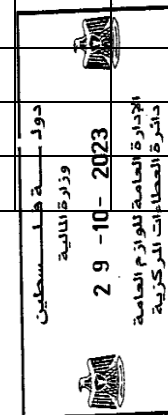 دولـــة فلـــسطين
وزارة المالية
29 -10- 2023
الإدارة العامة للوازم العامة
دائرة العطاءات المركزية